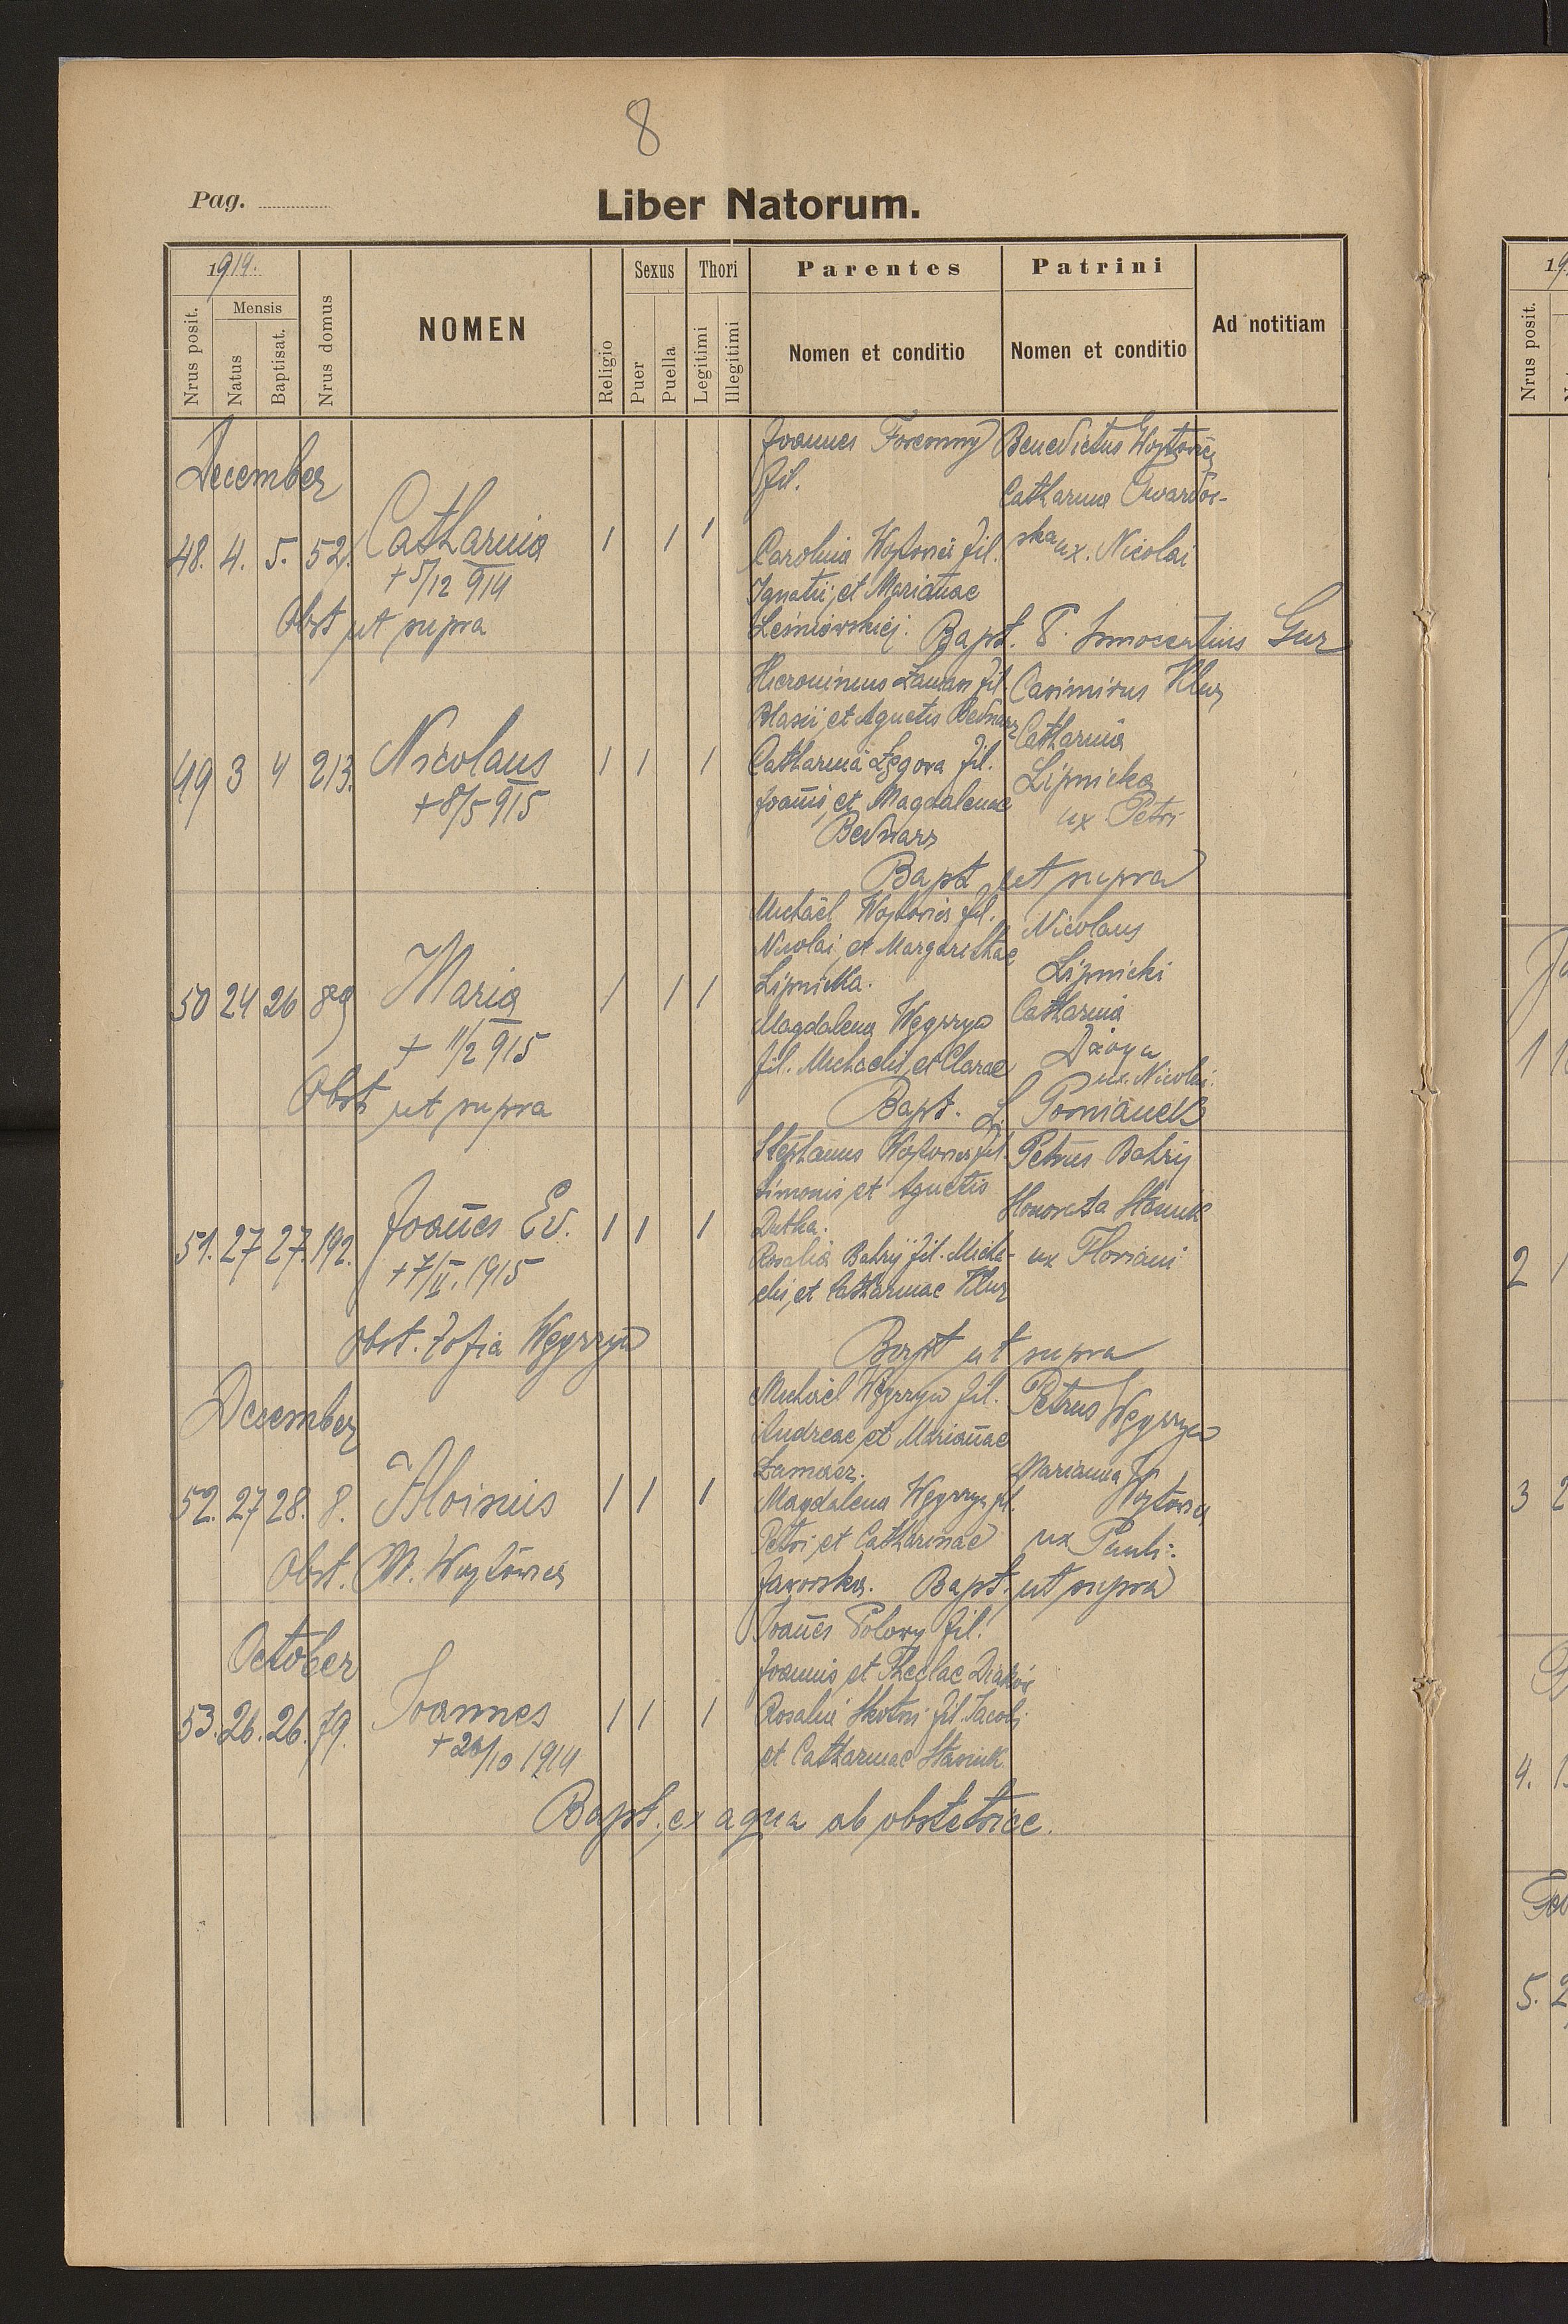 8
Pag.
Liber Natorum.
1914.
Nrus posit.
Mensis
Natus
Baptisat.
Nrus domus
NOMEN
Religio
Sexus
Puer
Puella
Thori
Legitimi
Illegitimi
Parentes
Nomen et conditio
Patrini
Nomen et conditio
Ad notitiam
December
48. 4. 5. 52. Catharina 1 1 1
+ 5/12 914
Obst ut supra
Joannes
fil.
Carolina Wojtowicz fil.
Ignatii et Mariannae
Leśniowskiej.
Benedictus Wojtowicz
Catharina Twardow-
ska ux. Nicolai
Bapt. P. Innocentius Gur
49 3 4 213. Nicolaus 1 1 1
+ 8/5 915
Hieronimus Laman fil
Blasii et Agnetis Bednarz
Catharina fil.
Joannis et Magdalenae
Bednarz
Casimirus Kluz
Catharina
Lipnicka
ux Petri
Bapt ut supra
50 24 26 89 Maria 1 1 1
+ 11/2 915
Obst ut supra
Michael Wojtowicz fil.
Nicolai et Margarethae
Lipnicka.
Magdalena Węgrzyn
fil. Michaelis et Clarae
Nicolaus
Lipnicki
Catharina
ux. Nicolai.
Bapt. Pomianek
51. 27 27. 192. Joañes Ev. 1 1 1
+ 7/II. 1915
Obst. Zofia Węgrzyn
Stephanus Wojtowicz fil.
Simonis et Agnetis
Rosalia Batrÿ fil. Micha-
elis et Catharinae Kluz
Petrus Batrÿ
Honorata Stanik
ux Floriani
Bapt ut supra
December
52. 27 28. 8. Aloisius 1 1 1
Obst. M. Wojtowicz
Michael Węgrzyn fil.
Andreae et Mariañae
Magdalena Węgrzyn fil.
Petri et Catharinae
Jaworska.
Petrus Węgrzyn
Marianna
Wojtowicz
ux Pauli.
Bapt. ut supra
October
53. 26. 26. 79. Joannes 1 1 1
+ 26/10 1914
Joañes Polowy fil.
Joannis et Theclae
Rosalia fil. Jacobi
et Catharinae Staniuk
Bapt. ex aqua ab obstetrice.
19
Nrus posit.
1
2
3 2
4.
5. 2